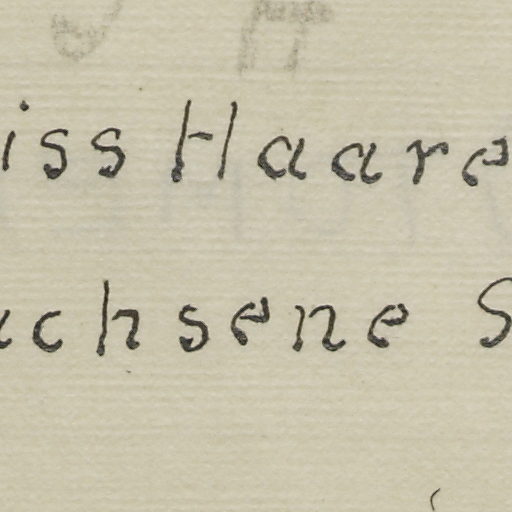 iss Haare
chsene S